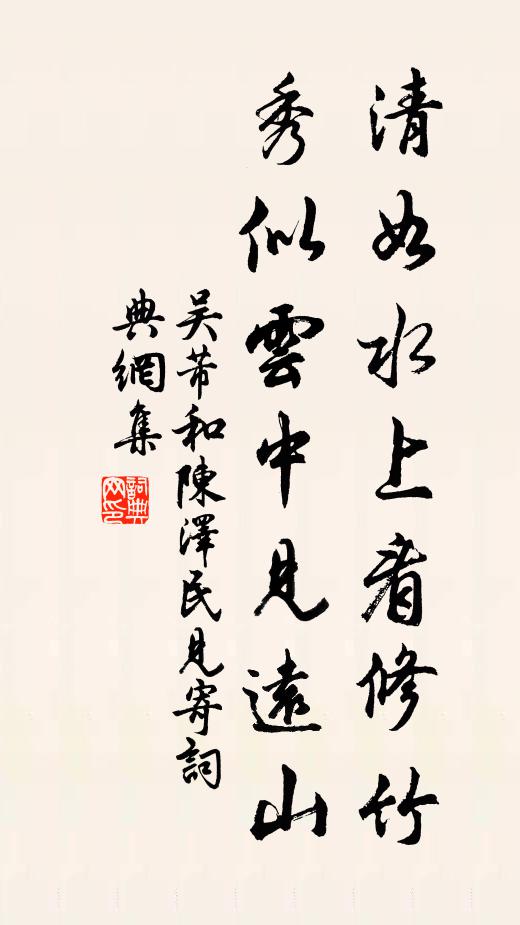 清如水上看修竹
秀似雲中見遠山
吳芾和陳澤民見寄詞
典網集
詞典网印